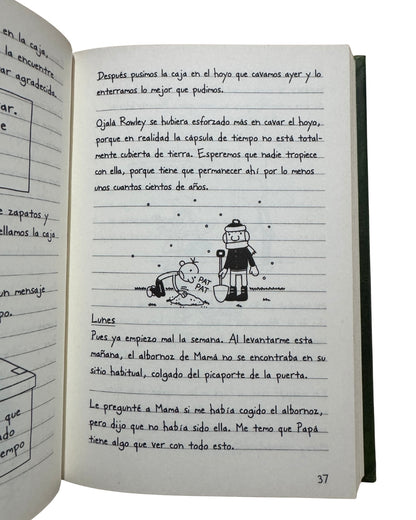 en la caja,
la encuentre
ar agradecida.
ar.
e
e zapatos y
ellamos la caja
un mensaje
po.
que
ado
tiempo
Después pusimos la caja en el hoyo que cavamos ayer y lo
enterramos lo mejor que pudimos.
Ojalá Rowley se hubiera esforzado más en cavar el hoyo,
porque en realidad la cápsula de tiempo no está total-
mente cubierta de tierra. Esperemos que nadie tropiece
con ella, porque tiene que permanecer ahí por lo menos
unos cuantos cientos de años.
PAT
PAT
Lunes
Pues ya empiezo mal la semana. Al levantarme esta
mañana, el albornoz de Mamá no se encontraba en su
sitio habitual, colgado del picaporte de la puerta.
Le pregunté a Mamá si me había cogido el albornoz,
pero dijo que no había sido ella. Me temo que Papá
tiene algo que ver con todo esto.
37